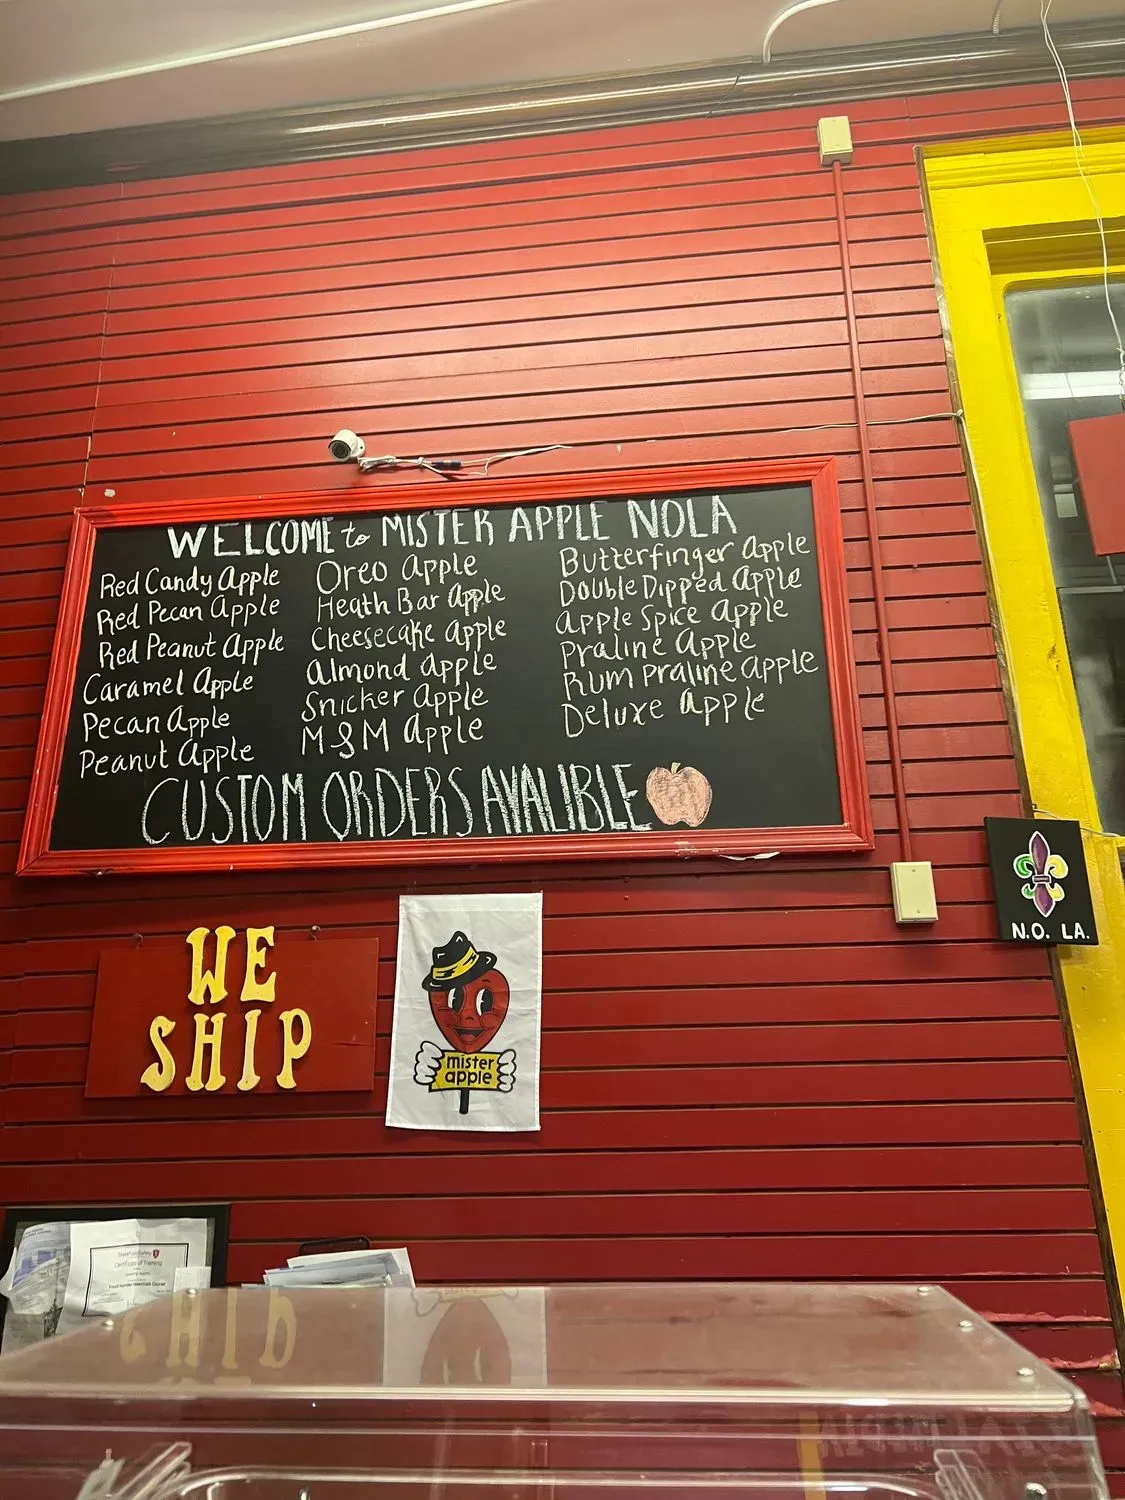 WELCOME to MISTER APPLE NOLA
Red Candy Apple
Red Pecan Apple
Red Peanut Apple
Caramel Apple
Pecan Apple
Peanut Apple
Oreo Apple
Heath Bar Apple
Cheesecake Apple
Almond Apple
Snicker Apple
M&M Apple
Butterfinger Apple
Double Dipped Apple
Apple Spice Apple
Praline Apple
Rum Praline Apple
Deluxe Apple
CUSTOM ORDERS AVALIBLE
WE
SHIP
mister
apple
N.O. LA.
Certificate of Training